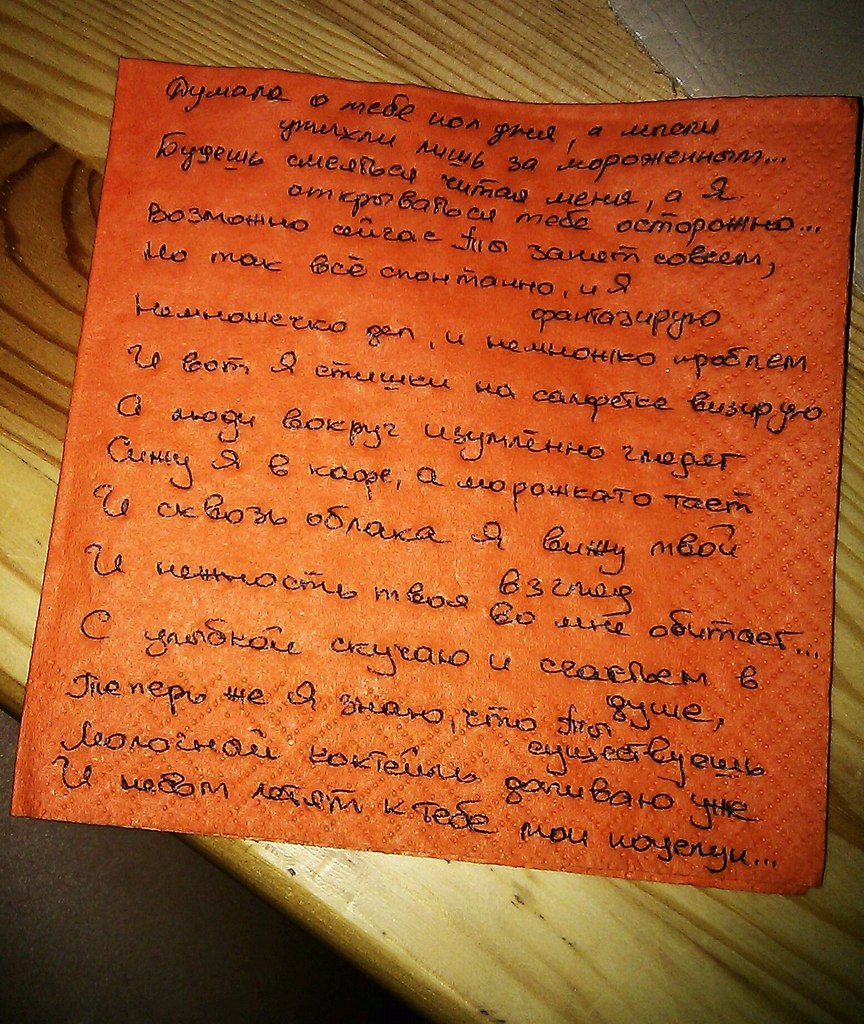 Думала о тебе пол дня, а мысли
утихли лишь за мороженным...
Будешь смеяться читая меня, а Я
открываться тебе осторожно...
Возможно сейчас Ты занят совсем,
Но так всё спонтанно, и Я
фантазирую
Немножечко дел, и немножко проблем
И вот Я стишки на салфетке визирую
А люди вокруг изумлённо глядят
Сижу Я в кафе, а морожкато тает
И сквозь облака Я вижу твой
взгляд
И нежность твоя во мне обитает...
С улыбкой скучаю и счастьем в
душе,
Теперь же Я знаю, что Ты
существуешь
Молочный коктейль допиваю уже
И небом летят к тебе мои поцелуи...